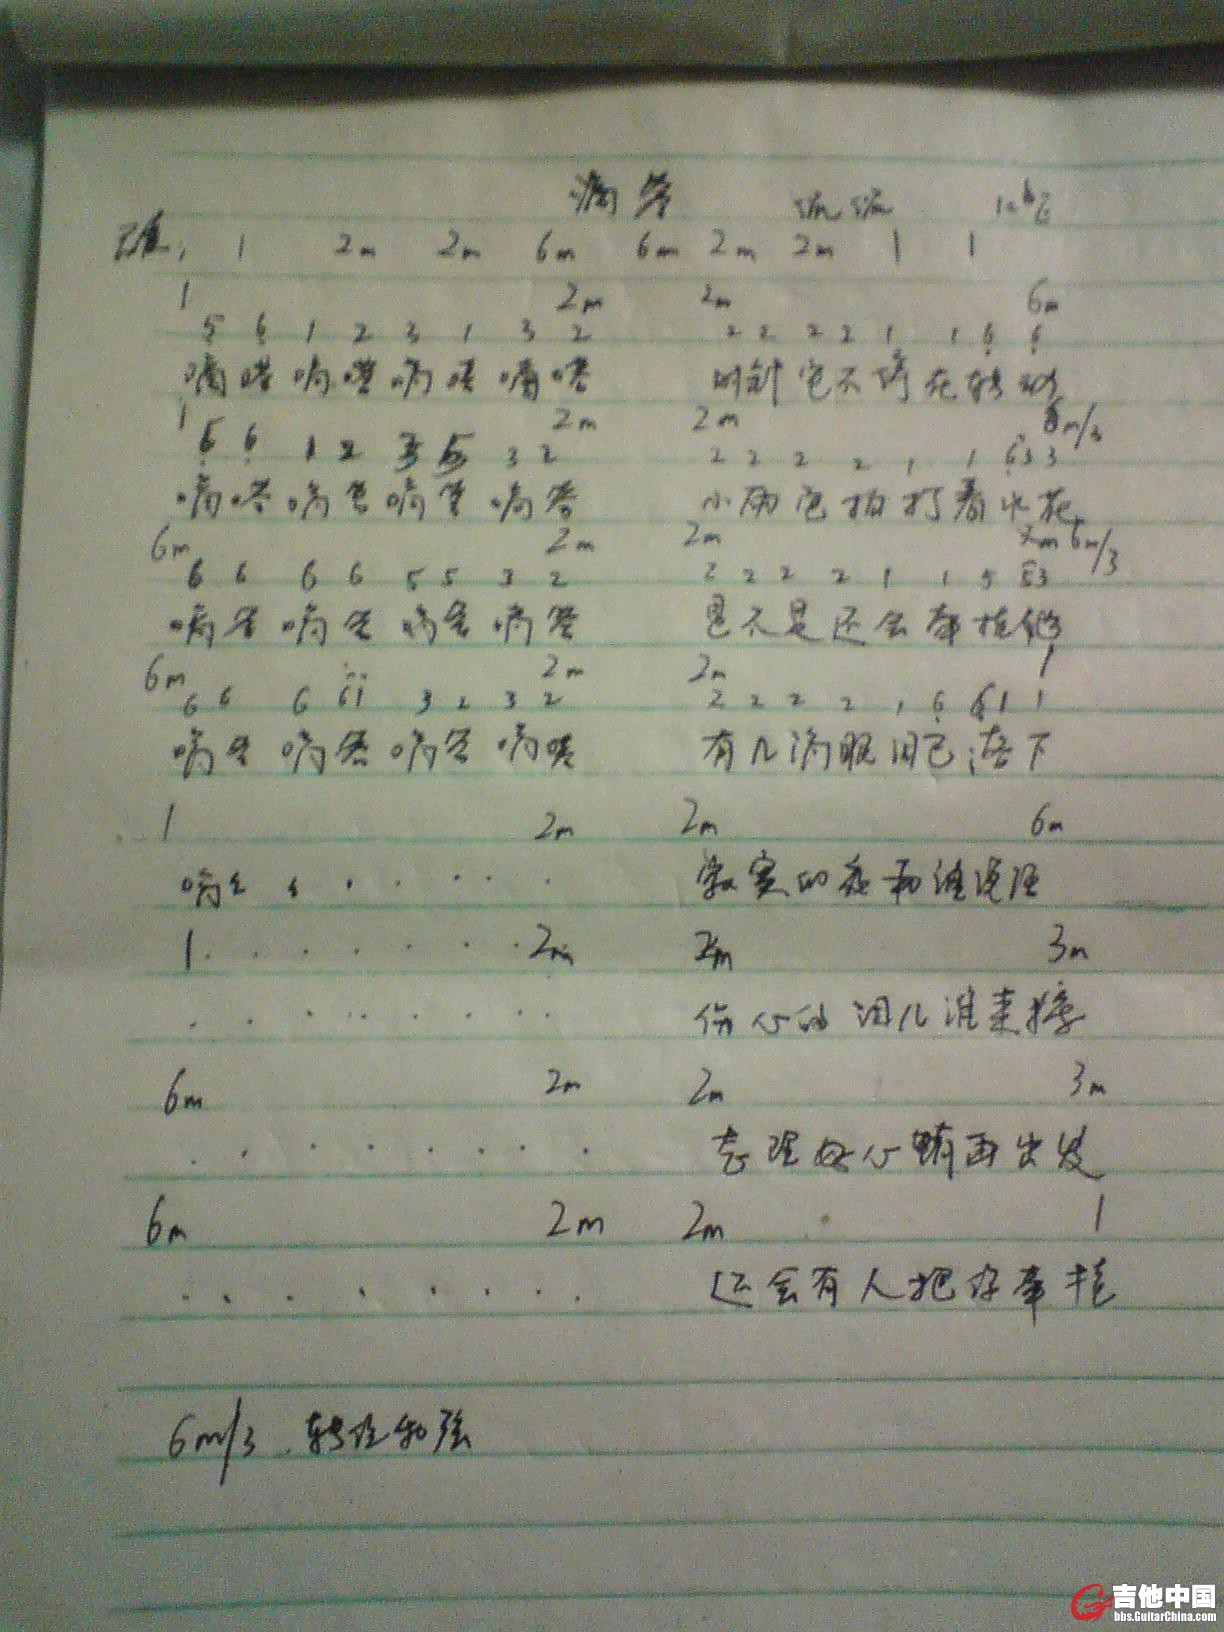 滴答 侃侃 1=bE
1 2m 2m 6m 6m 2m 2m 1 1
1 2m 2m 6m
5 6 1 2 3 1 3 2 2 2 2 2 1 1 6 6
嘀嗒嘀嗒嘀嗒嘀嗒 时针它不停在转动
1 2m 2m 6m/3
5 6 1 2 3 5 3 2 2 2 2 2 1 1 6 3 3
嘀嗒嘀答嘀答嘀答 小雨它拍打着水花
6m 2m 2m 6m/3
6 6 6 6 5 5 3 2 2 2 2 2 1 1 5 5 3
嘀答嘀答嘀答嘀答 是不是还会牵挂他
6m 2m 2m 1
6 6 6 6 1 3 2 3 2 2 2 2 2 1 6 6 1 1
嘀答嘀答嘀答嘀嗒 有几滴眼泪已落下
1 2m 2m 6m
嘀 寂寞的夜和谁说话
1 2m 2m 3m
伤心的泪儿谁来擦
6m 2m 2m 3m
整理好心情再出发
6m 2m 2m 1
还会有人把你牵挂
6m/3 转位和弦
吉他中国
bbs.GuitarChina.com